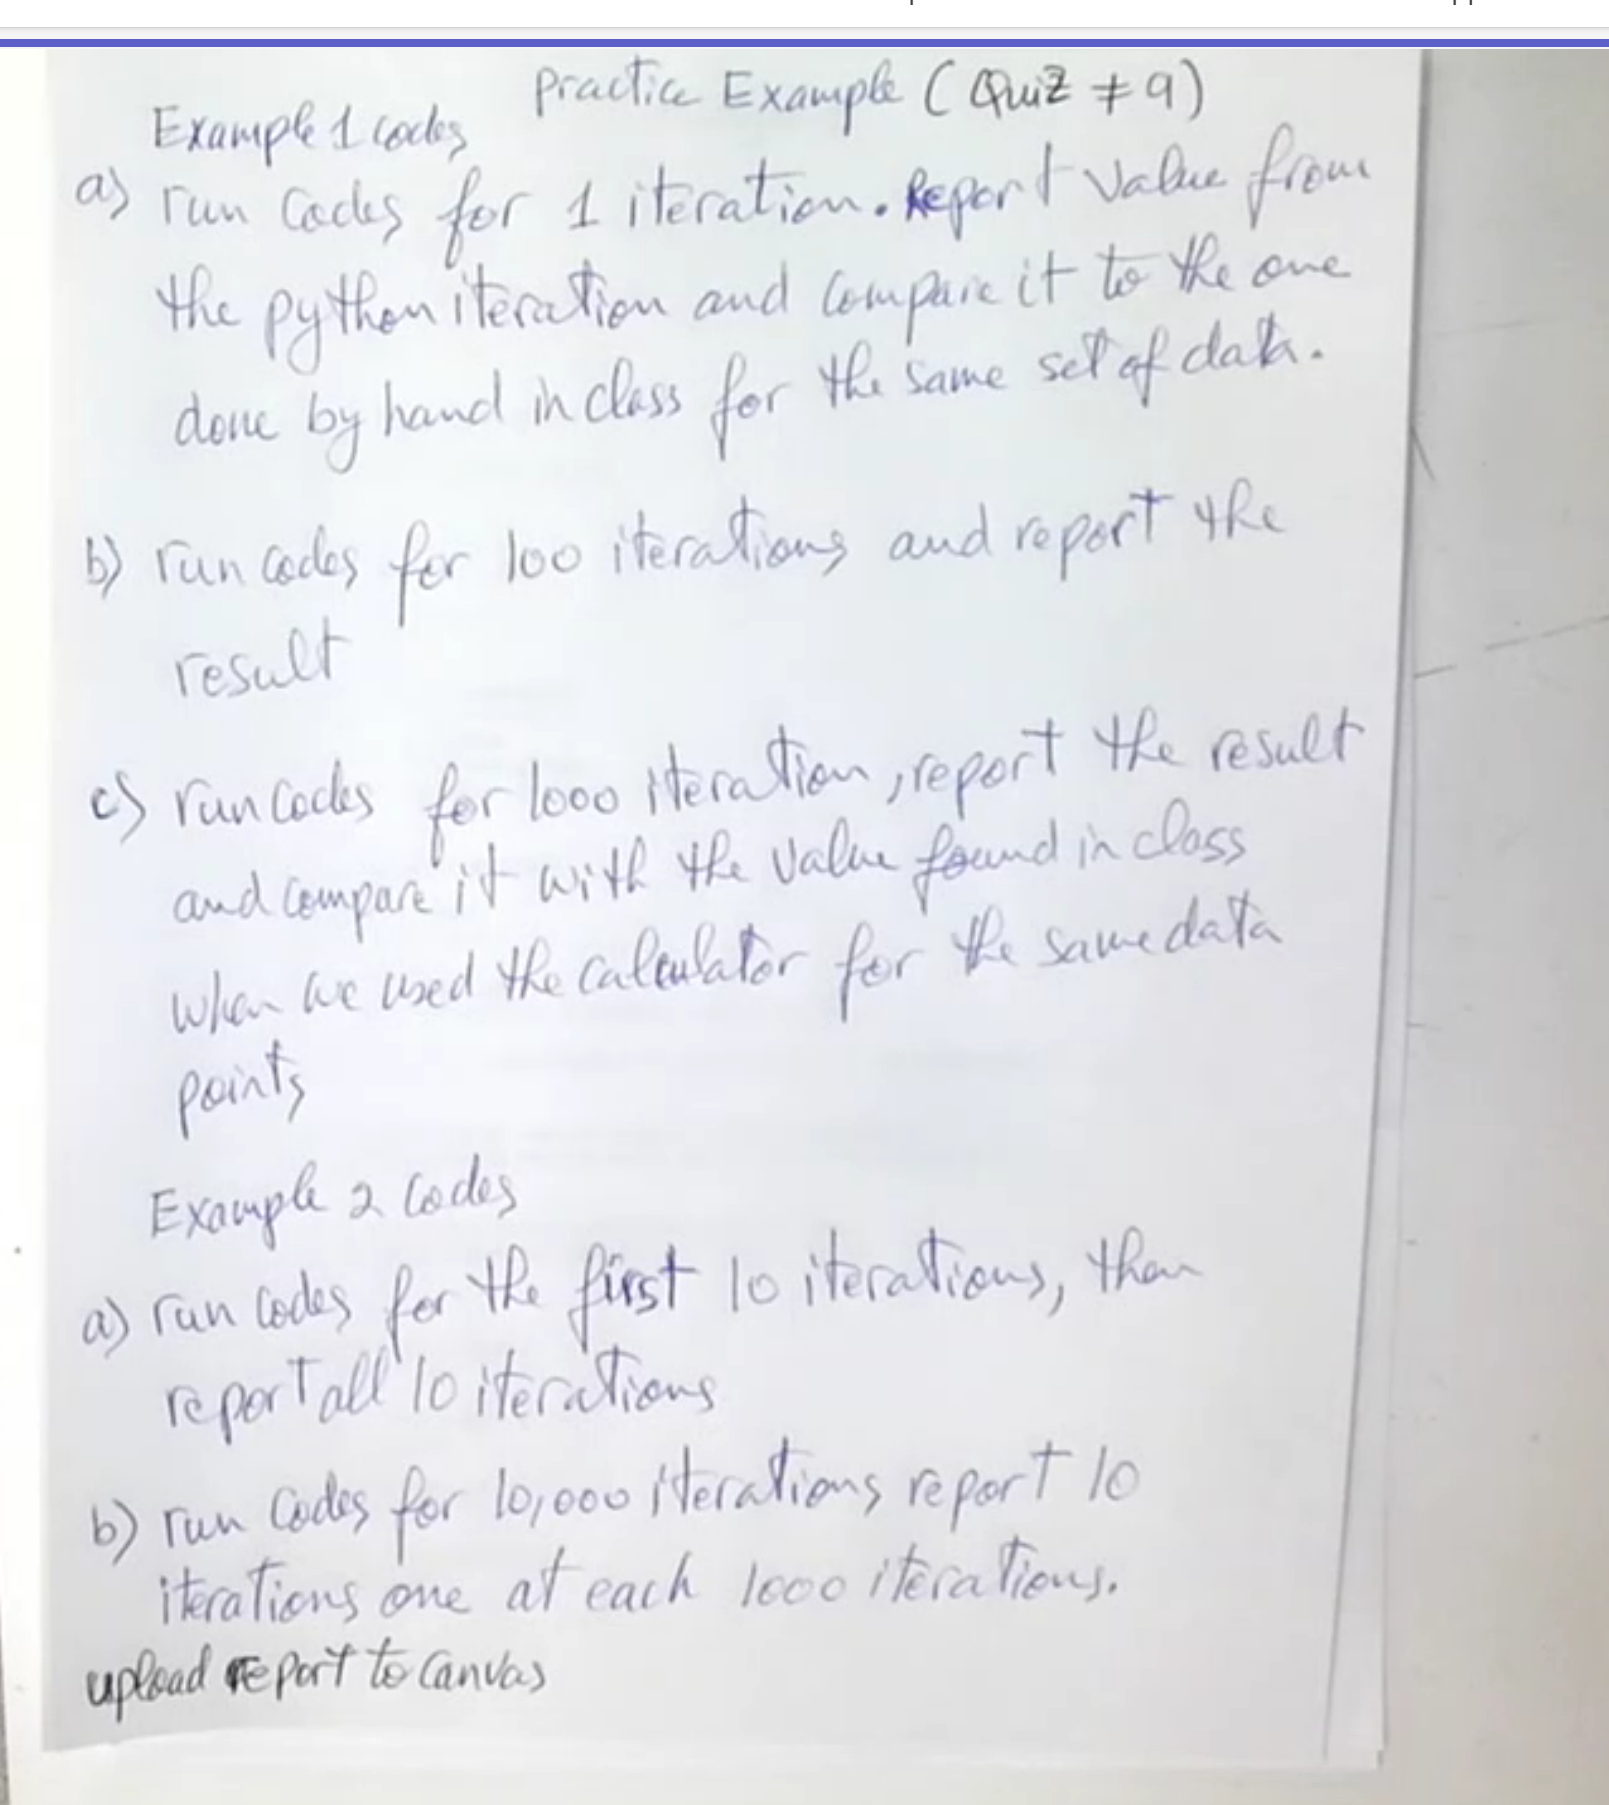 Practice Example (Quiz # 9)
Example 1 codes
a) run codes for 1 iteration. Report value from
the python iteration and compare it to the one
done by hand in class for the same set of data.
b) run codes for 100 iterations and report the
result
c) run codes for 1000 iteration, report the result
and compare it with the value found in class
when we used the calculator for the same data
points
Example 2 codes
a) run codes for the first 10 iterations, then
report all 10 iterations
b) run codes for 10,000 iterations report 10
iterations one at each 1000 iterations.
upload report to Canvas